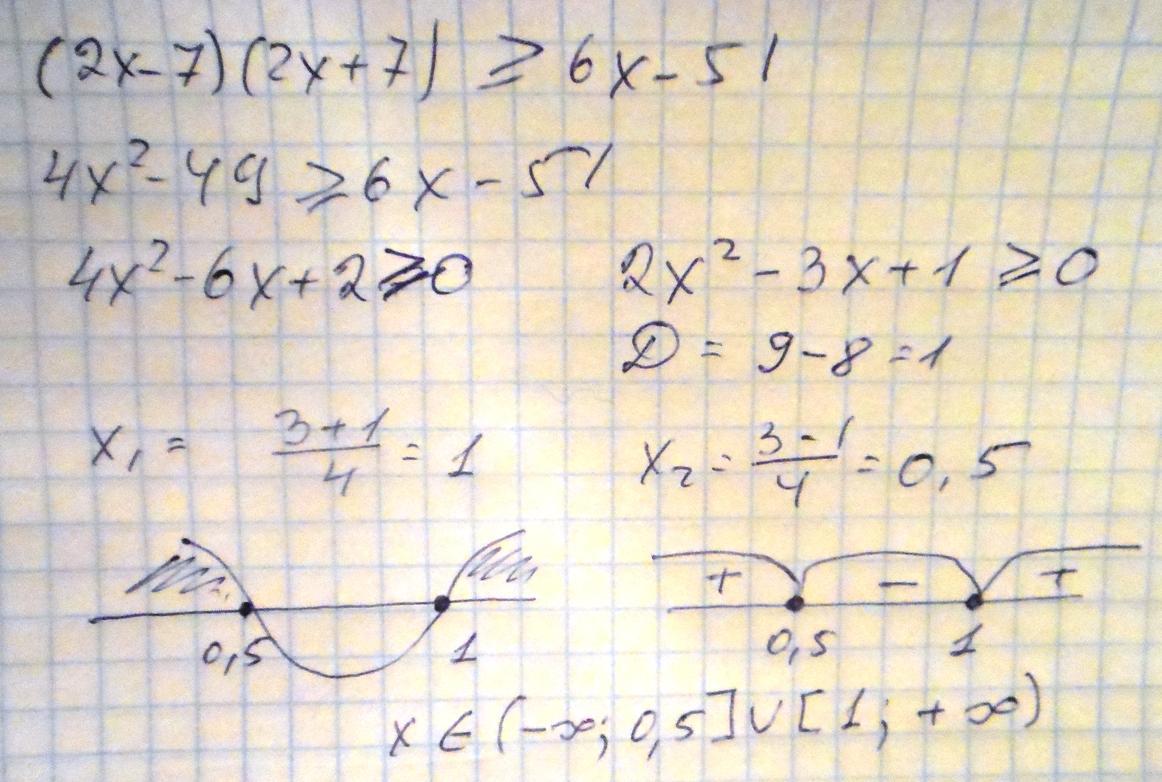 (2x-7)(2x+7) ≥ 6x-51
4x²-49 ≥ 6x-51
4x²-6x+2≥0 2x²-3x+1≥0
D = 9-8=1
x₁ = (3+1)/4 = 1 x₂ = (3-1)/4 = 0,5
+ - +
0,5 1 0,5 1
x ∈ (-∞; 0,5]∪[1; +∞)